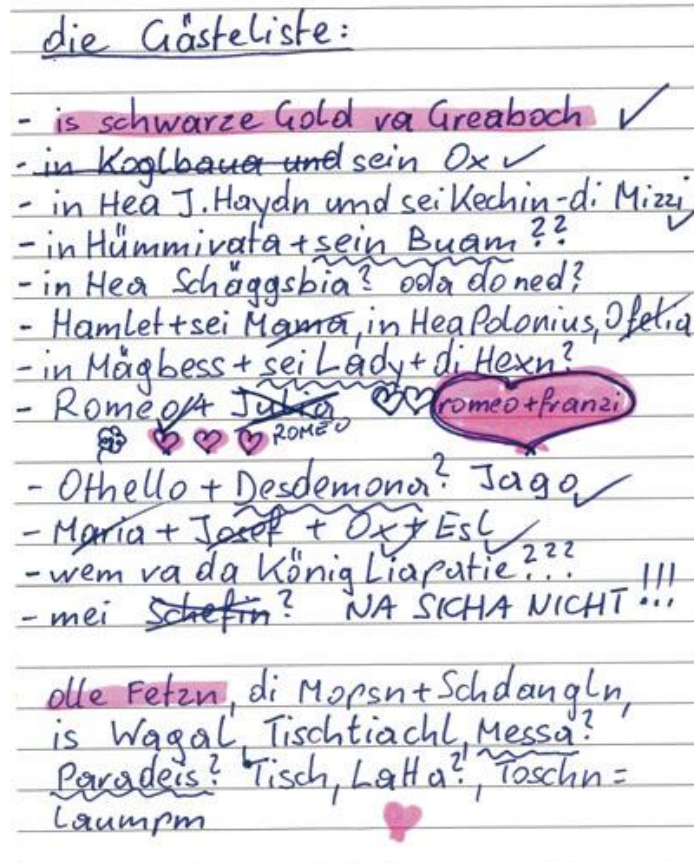 die Gästeliste:
- is schwarze Gold va Greaboch ✓
- in Koglbaua und sein Ox ✓
- in Hea J. Haydn und sei Kechin - di Mizzi ✓
- in Hümmivata + sein Buam??
- in Hea Schäggsbia? oda do ned?
- Hamlet + sei Mama, in Hea Polonius, Ofelia
- in Mägbess + sei Lady + di Hexn?
- Romeo ✓ + Julia ♡♡ romeo + franzi
♥ ♥ ♥ ROMEO
- Othello + Desdemona? Jago ✓
- Maria + Josef + Ox + Esl ✓
- wem va da König Liapatie???
- mei Schefin? NA SICHA NICHT!!!
olle Fetzn, di Mopsn + Schdangln,
is Wagal, Tischtiachl, Messa?
Paradeis? Tisch, Latta?, Toschn =
Laumpm ♥